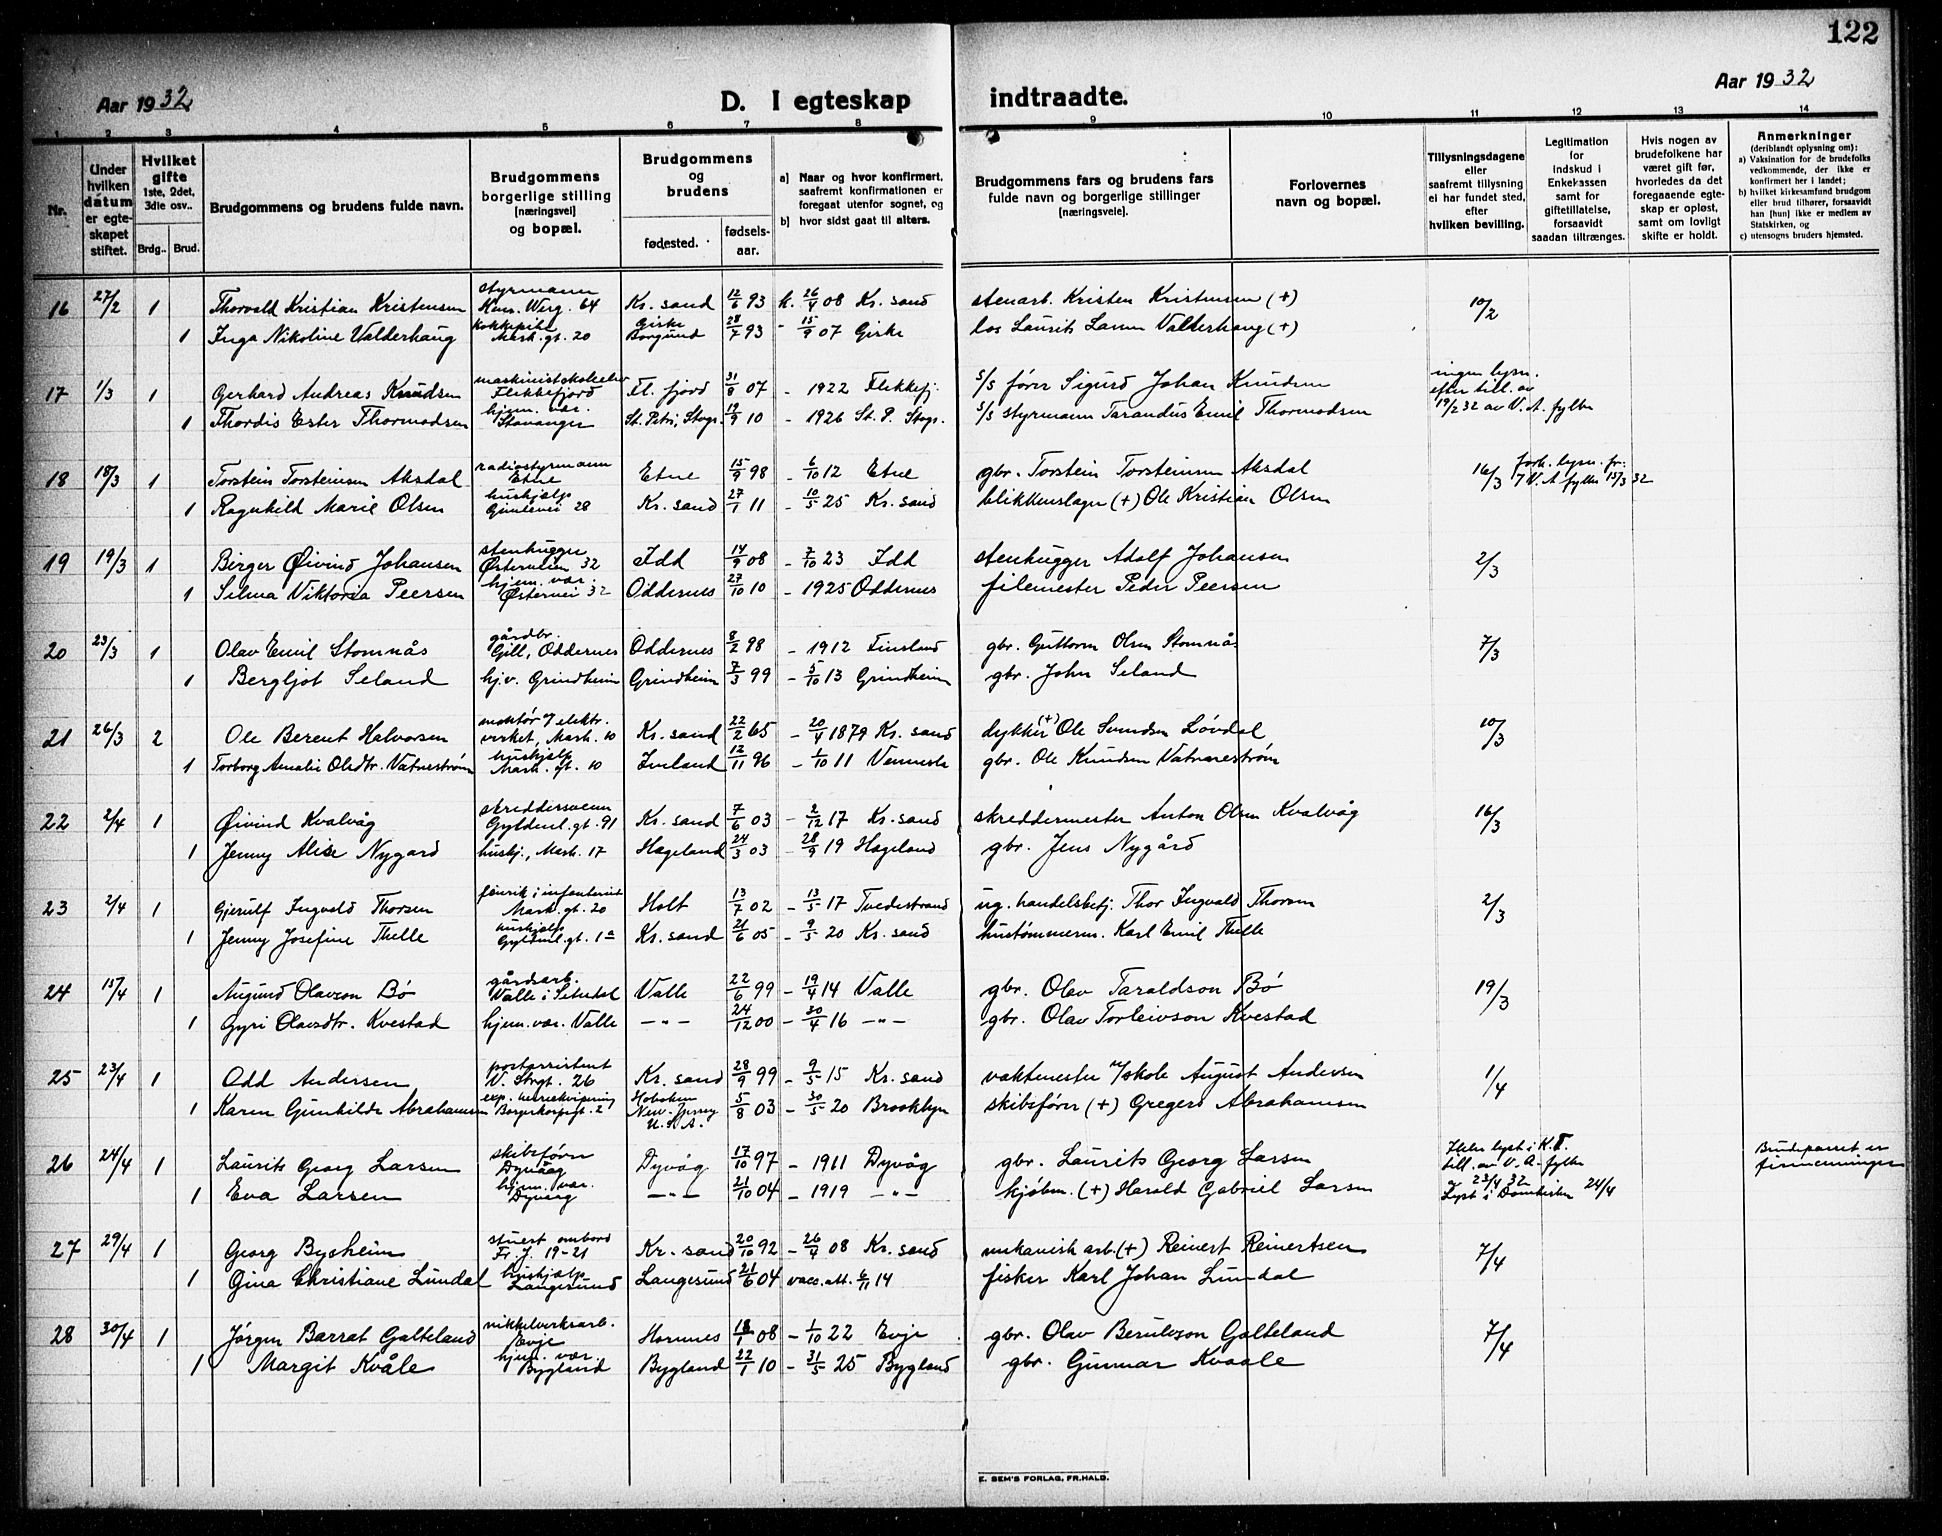 122
Aar 1932
D. I egteskap indtraadte.
Aar 1932
1 2 3 4 5 6 7 8 9 10 11 12 13 14
Nr.
Under hvilken datum er egteskapet stiftet.
Hvilket gifte 1ste, 2det, 3die osv..
Brdg.. Brud.
Brudgommens og brudens fulde navn.
Brudgommens borgerlige stilling [næringsvei] og bopæl.
Brudgommens og brudens
fødested. fødselsaar.
a) Naar og hvor konfirmert, saafremt konfirmationen er foregaat utenfor sognet, og
b) hvor sidst gaat til alters.
Brudgommens fars og brudens fars fulde navn og borgerlige stillinger [næringsveie].
Forlovernes navn og bopæl.
Tillysningsdagene eller saafremt tillysning ei har fundet sted, efter hvilken bevilling.
Legitimation for Indskud i Enkekassen samt for giftetillatelse, forsaavidt saadan tiltrænges.
Hvis nogen av brudefolkene har været gift før, hvorledes da det foregaaende egteskap er opløst, samt om lovligt skifte er holdt.
Anmerkninger (deriblandt oplysning om):
a) Vaksination for de brudefolks vedkommende, der ikke er konfirmert her i landet;
b) hvilket kirkesamfund brudgom eller brud tilhører, forsaavidt han [hun] ikke er medlem av Statskirken, og
c) utensogns bruders hjemsted.
16 27/2 1 Thorvald Kristian Kristensen styrmann Hens. Werg. 64 Kr. sand 12/6 93 k. 26/4 08 Kr. sand stenarb. Kristen Kristensen (+) 10/2
1 Inga Nikoline Valderhaug kokkepike Mark. gt. 20 Giske Borgund 28/7 93 - 15/9 07 Giske los Laurits Larsen Valderhaug (+)
17 1/3 1 Gerhard Andreas Knudsen Flekkefjord Fl. fjord 31/8 07 - 1922 Flekkefj. s/s fører Sigurd Johan Knudsen ingen lysn. efter till. av 19/2 32 av V. A. fylke
1 Thordis Ester Thormodsen hjem. vær. Stavanger St. Petri, Stvgr. 19/9 10 - 1926 St. P. Stvgr. s/s styrmann Tarandus Emil Thormodsen
18 18/3 1 Torstein Torsteinsen Aksdal radiostyrmann Etne Etne 15/9 98 - 6/10 12 Etne gbr. Torstein Torsteinsen Aksdal 16/3 fork. lysn. fr. V. A fylke 15/3 32
1 Ragnhild Marie Olsen hushjelp 28 Kr. sand 27/1 11 - 10/5 25 Kr. sand blikkenslager (+) Ole Kristian Olsen
19 19/3 1 Birger Øivind Johansen stenhugger Østerveien 32 Idd 14/9 08 - 7/10 23 Idd stenhugger Adolf Johansen 2/3
1 Selma Viktoria Peersen hjem. vær. Østervei 32 Oddernes 27/10 10 - 1925 Oddernes filemester Peder Peersen
20 23/3 1 Olav Emil Stomnås gårdbr. Gill, Oddernes Oddernes 8/2 98 - 1912 Finsland gbr. Guttorm Olsen Stomnås 7/3
1 Bergljot Seland hjv. Grindheim Grindheim 7/3 99 - 5/10 13 Grindheim gbr. John Seland
21 26/3 2 Ole Berent Halvorsen montør v/ elektr. verket, Mark. 10 Kr. sand 22/2 65 - 20/4 1879 Kr. sand dykker (+) Ole Svendsen Løvdal 10/3
1 Torborg Amalie Olsdtr. Vatnestrøm hushjelp Mark. gt. 10 Iveland 12/11 96 - 1/10 11 Vennesla gbr. Ole Knudsen Vatnestrøm
22 2/4 1 Øivind Kvalvåg skreddersvenn Gyldenl. gt. 91 Kr. sand 7/6 03 - 2/12 17 Kr. sand skreddermester Anton Olsen Kvalvåg 16/3
1 Jenny Alise Nygard hushj., Mark. 17 Hægeland 24/3 03 - 28/9 19 Hægeland gbr. Jens Nygård
23 2/4 1 Gjerulf Ingvald Thorsen fenrik i infanteriet Mark. gt. 20 Holt 13/7 02 - 13/5 17 Tvedestrand ug. handelsbetj. Thor Ingvald Thorsen 2/3
1 Jenny Josefine Thelle hushjelp Gyldenl. gt. 1a Kr. sand 21/6 05 - 9/5 20 Kr. sand hustømmerm. Karl Emil Thelle
24 15/4 1 Augund Olavson Bø gårdsarb. Valle i Setesdal Valle 22/6 99 - 19/4 14 Valle gbr. Olav Taraldson Bø 19/3
1 Gyri Olavsdtr. Kvestad hjem. vær. Valle -"- 24/12 00 - 30/4 16 -"- gbr. Olav Torleivson Kvestad
25 23/4 1 Odd Andersen postassistent V. Strgt. 26 Kr. sand 28/9 99 - 9/5 15 Kr. sand vaktmester v/skole August Andersen 1/4
1 Karen Gunhilde Abrahamsen exp. herreekvipering 2 Hoboken New-Jersey U.S.A. 5/8 03 - 30/5 20 Brooklyn skibsfører (+) Gregers Abrahamsen
26 24/4 1 Laurits Georg Larsen skibsfører Dyvåg Dyvåg 17/10 97 - 1911 Dyvåg gbr. Laurits Georg Larsen till. av V. A. fylke 23/4 32 Lyst i Domkirken 24/4 Brudeparret er firmenninger
1 Eva Larsen hjem. vær. Dyvåg -"- 21/10 04 - 1919 -"- kjøbm. (+) Harald Gabriel Larsen
27 29/4 1 Georg Bysheim stuert ombord Fr. J. 19-21 Kr. sand 20/10 92 - 26/4 08 Kr. sand mekanisk arb. (+) Reinert Reinertsen 7/4
1 Gina Christiane Lundal hushjelp Langesund Langesund 21/6 04 vacc. att. 6/11 14 fisker Karl Johan Lundal
28 30/4 1 Jørgen Barrat Galteland nikkelverksarb. Evje Hornnes 18/1 08 - 1/10 22 Evje gbr. Olav Berulvson Galteland 7/4
1 Margit Kvåle hjem. vær. Bygland Bygland 22/1 10 - 31/5 25 Bygland gbr. Gunnar Kvaale
E. SEM'S FORLAG, FR.HALD.